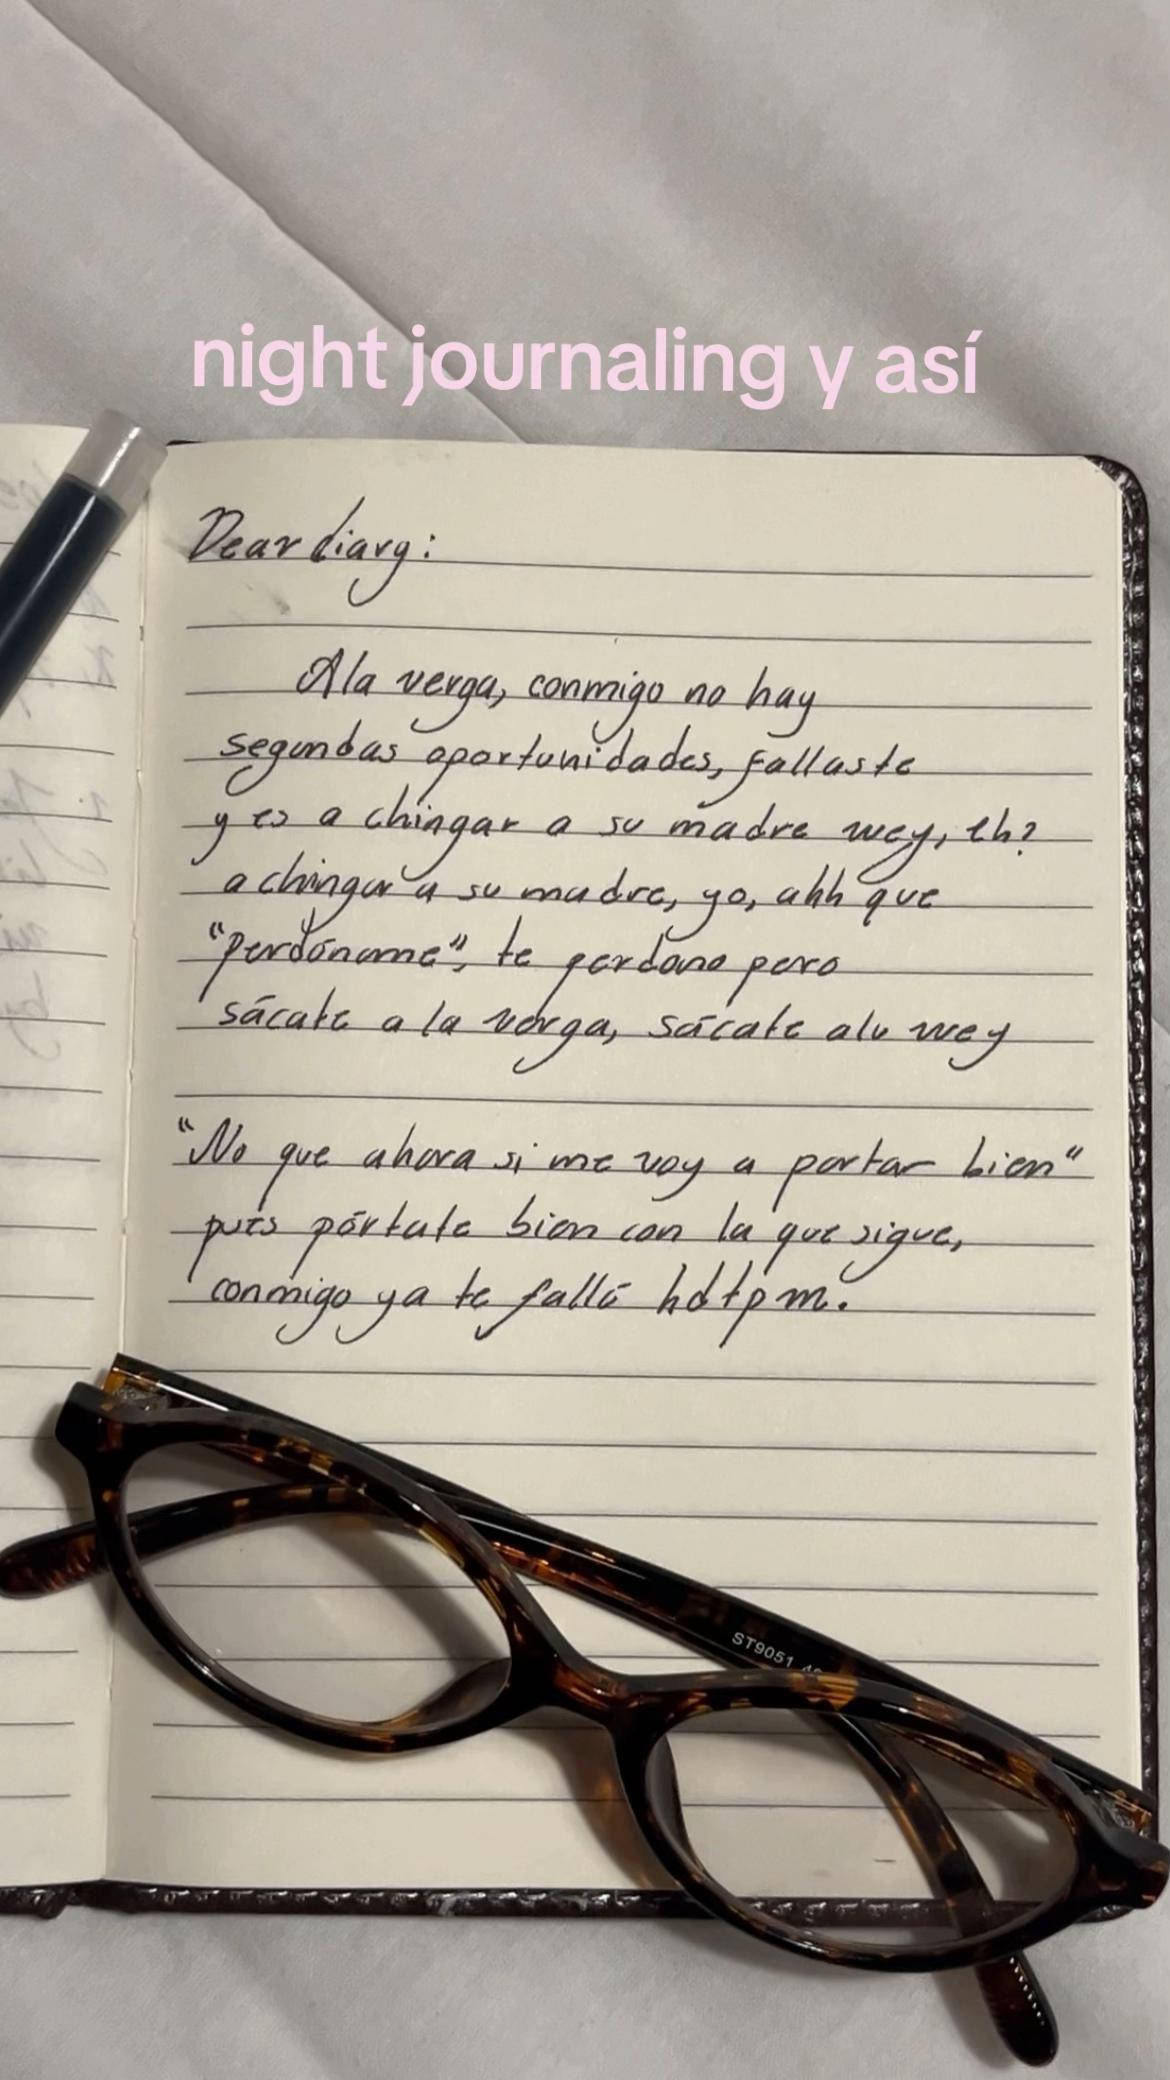 night journaling y así
Dear diary:
A la verga, conmigo no hay
segundas oportunidades, fallaste
y es a chingar a su madre wey, eh?
a chingar a su madre, yo, ahh que
"perdóname", te perdono pero
sácate a la verga, sácate alv wey
"No que ahora si me voy a portar bien"
pues pórtate bien con la que sigue,
conmigo ya te falló hdtpm.
ST9051